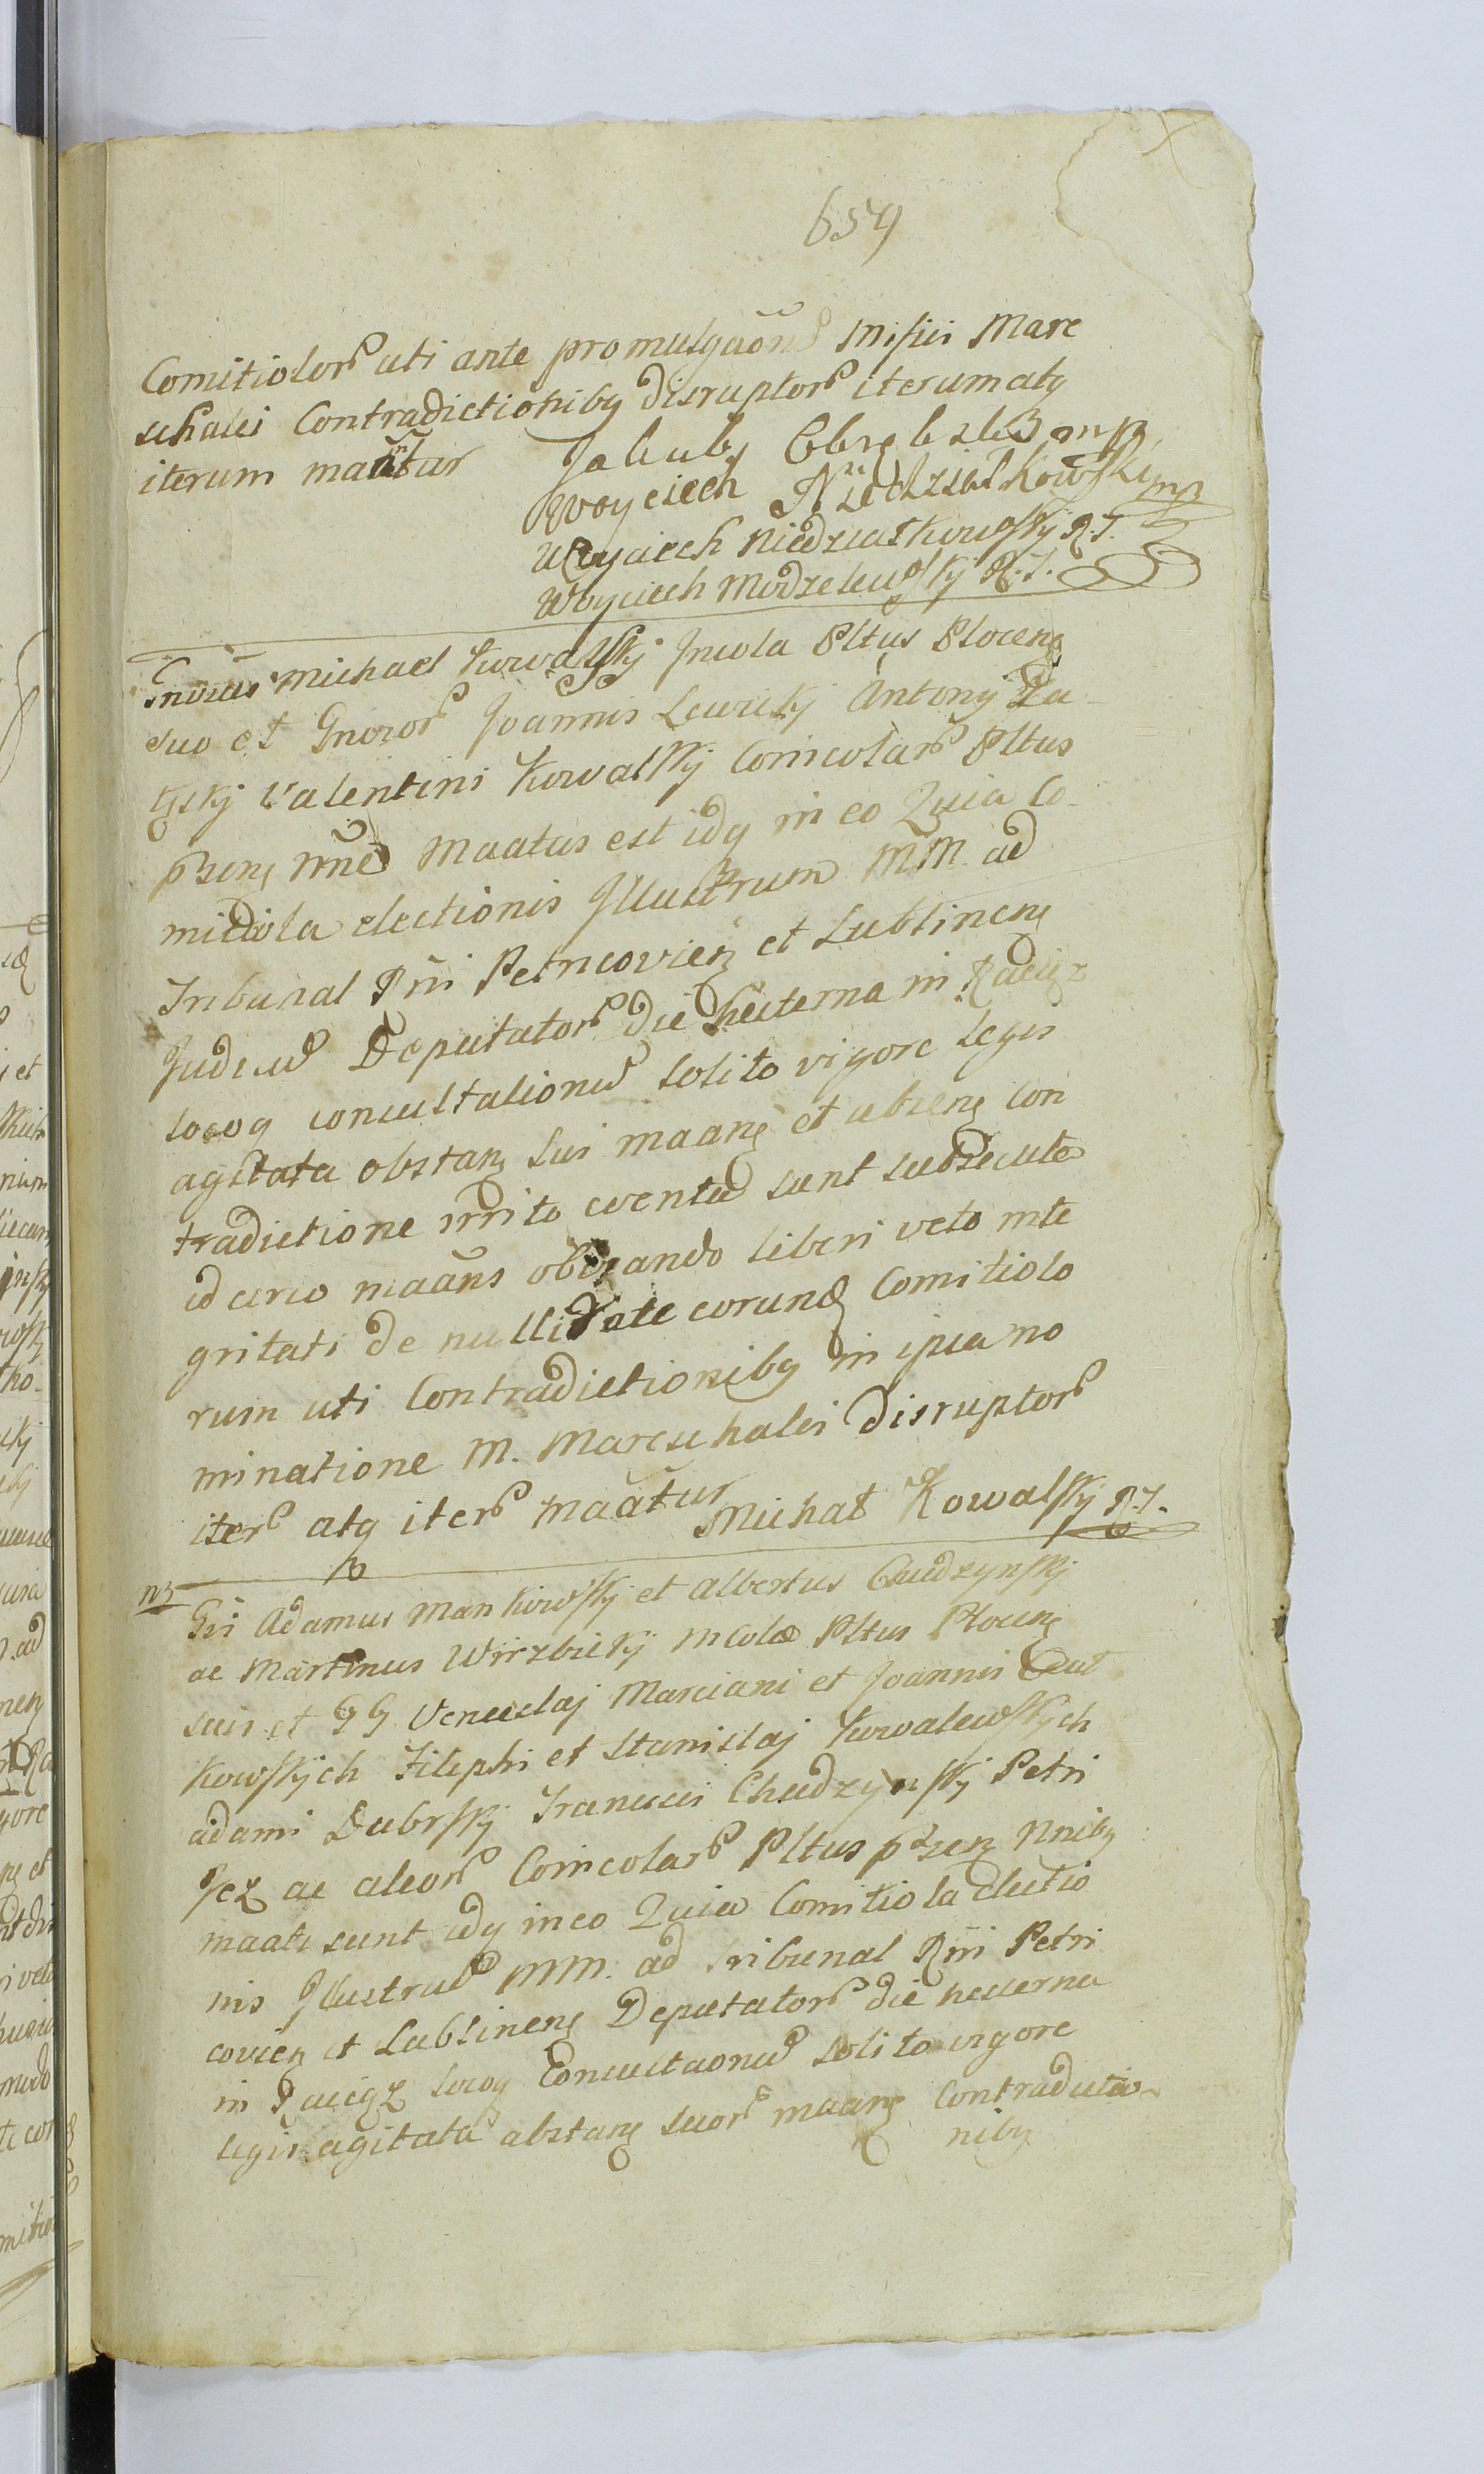 659
Comitiolor uti ante promulgaōn Misici Mare
schalei Contradictioniby disruptor iterumatq
iterum maāntur Jakuby mp
Woyciech Niedziałkowski mp
Woyciech Niedziałkowskÿ R.T.
Woyciech Modzelewskÿ R.T.
Gnōsus Michael Kowalskÿ Incola Pltus Plocens
suo et Gnozor Joannis Lewickÿ Antonÿ Za-
Valentini Kowalskÿ Conicolar Pltus
pzens nne Maatus est idq in eo Quia Co-
mitiola electionis Illustrum MM. ad
Tribunal Rni Petricovien et Lublinens
Judicu Deputator die hesterna in Raciąz
locoq consultationu solito vigore Legis
agitata obstan sui maans et absens Con
tradictione irrito eventu sunt subsecuta
id circo maāns obviando liberi veto inte
gritati de nullitate corund Comitiolo
rum uti Contradictioniby in ipsa no
minatione M. Mareschalei disruptor
iter atq iter maātur Michał Kowalskÿ R.T.
Gsi Adamus Mankowskÿ et Albertus Chudzynskÿ
ac Martinus Wirzbickÿ incolæ Pltus Plocens
suis et GG Venceslaj Marciani et Joannis Rut
kowskÿch Filiphi et Stanislaj Kowalewskÿch
Adami Dubrskÿ Francisci Chudzynskÿ Petri
Jez ac alior Conicolar Pltus pzens Nniby
maati sunt idq in eo Quia Comitiola electio
nis Illustru MM. ad Tribunal Rni Petri
covien et Lublinens Deputator die hesterna
in Raciąz locoq Consultaonu solito vigore
legis agitata abstans suor maans Contradictio-
niby